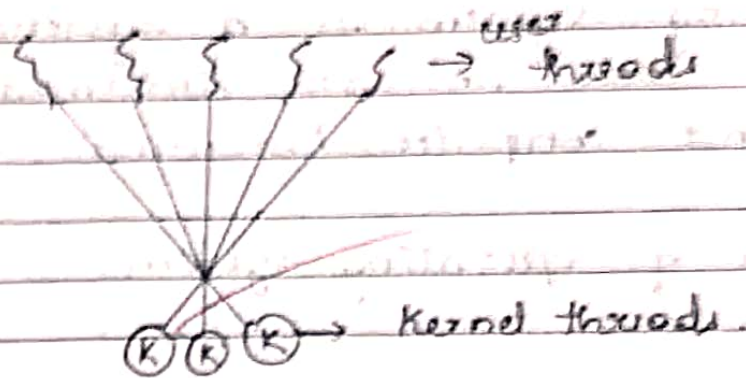 user
→ threads
K K K → Kernel threads.